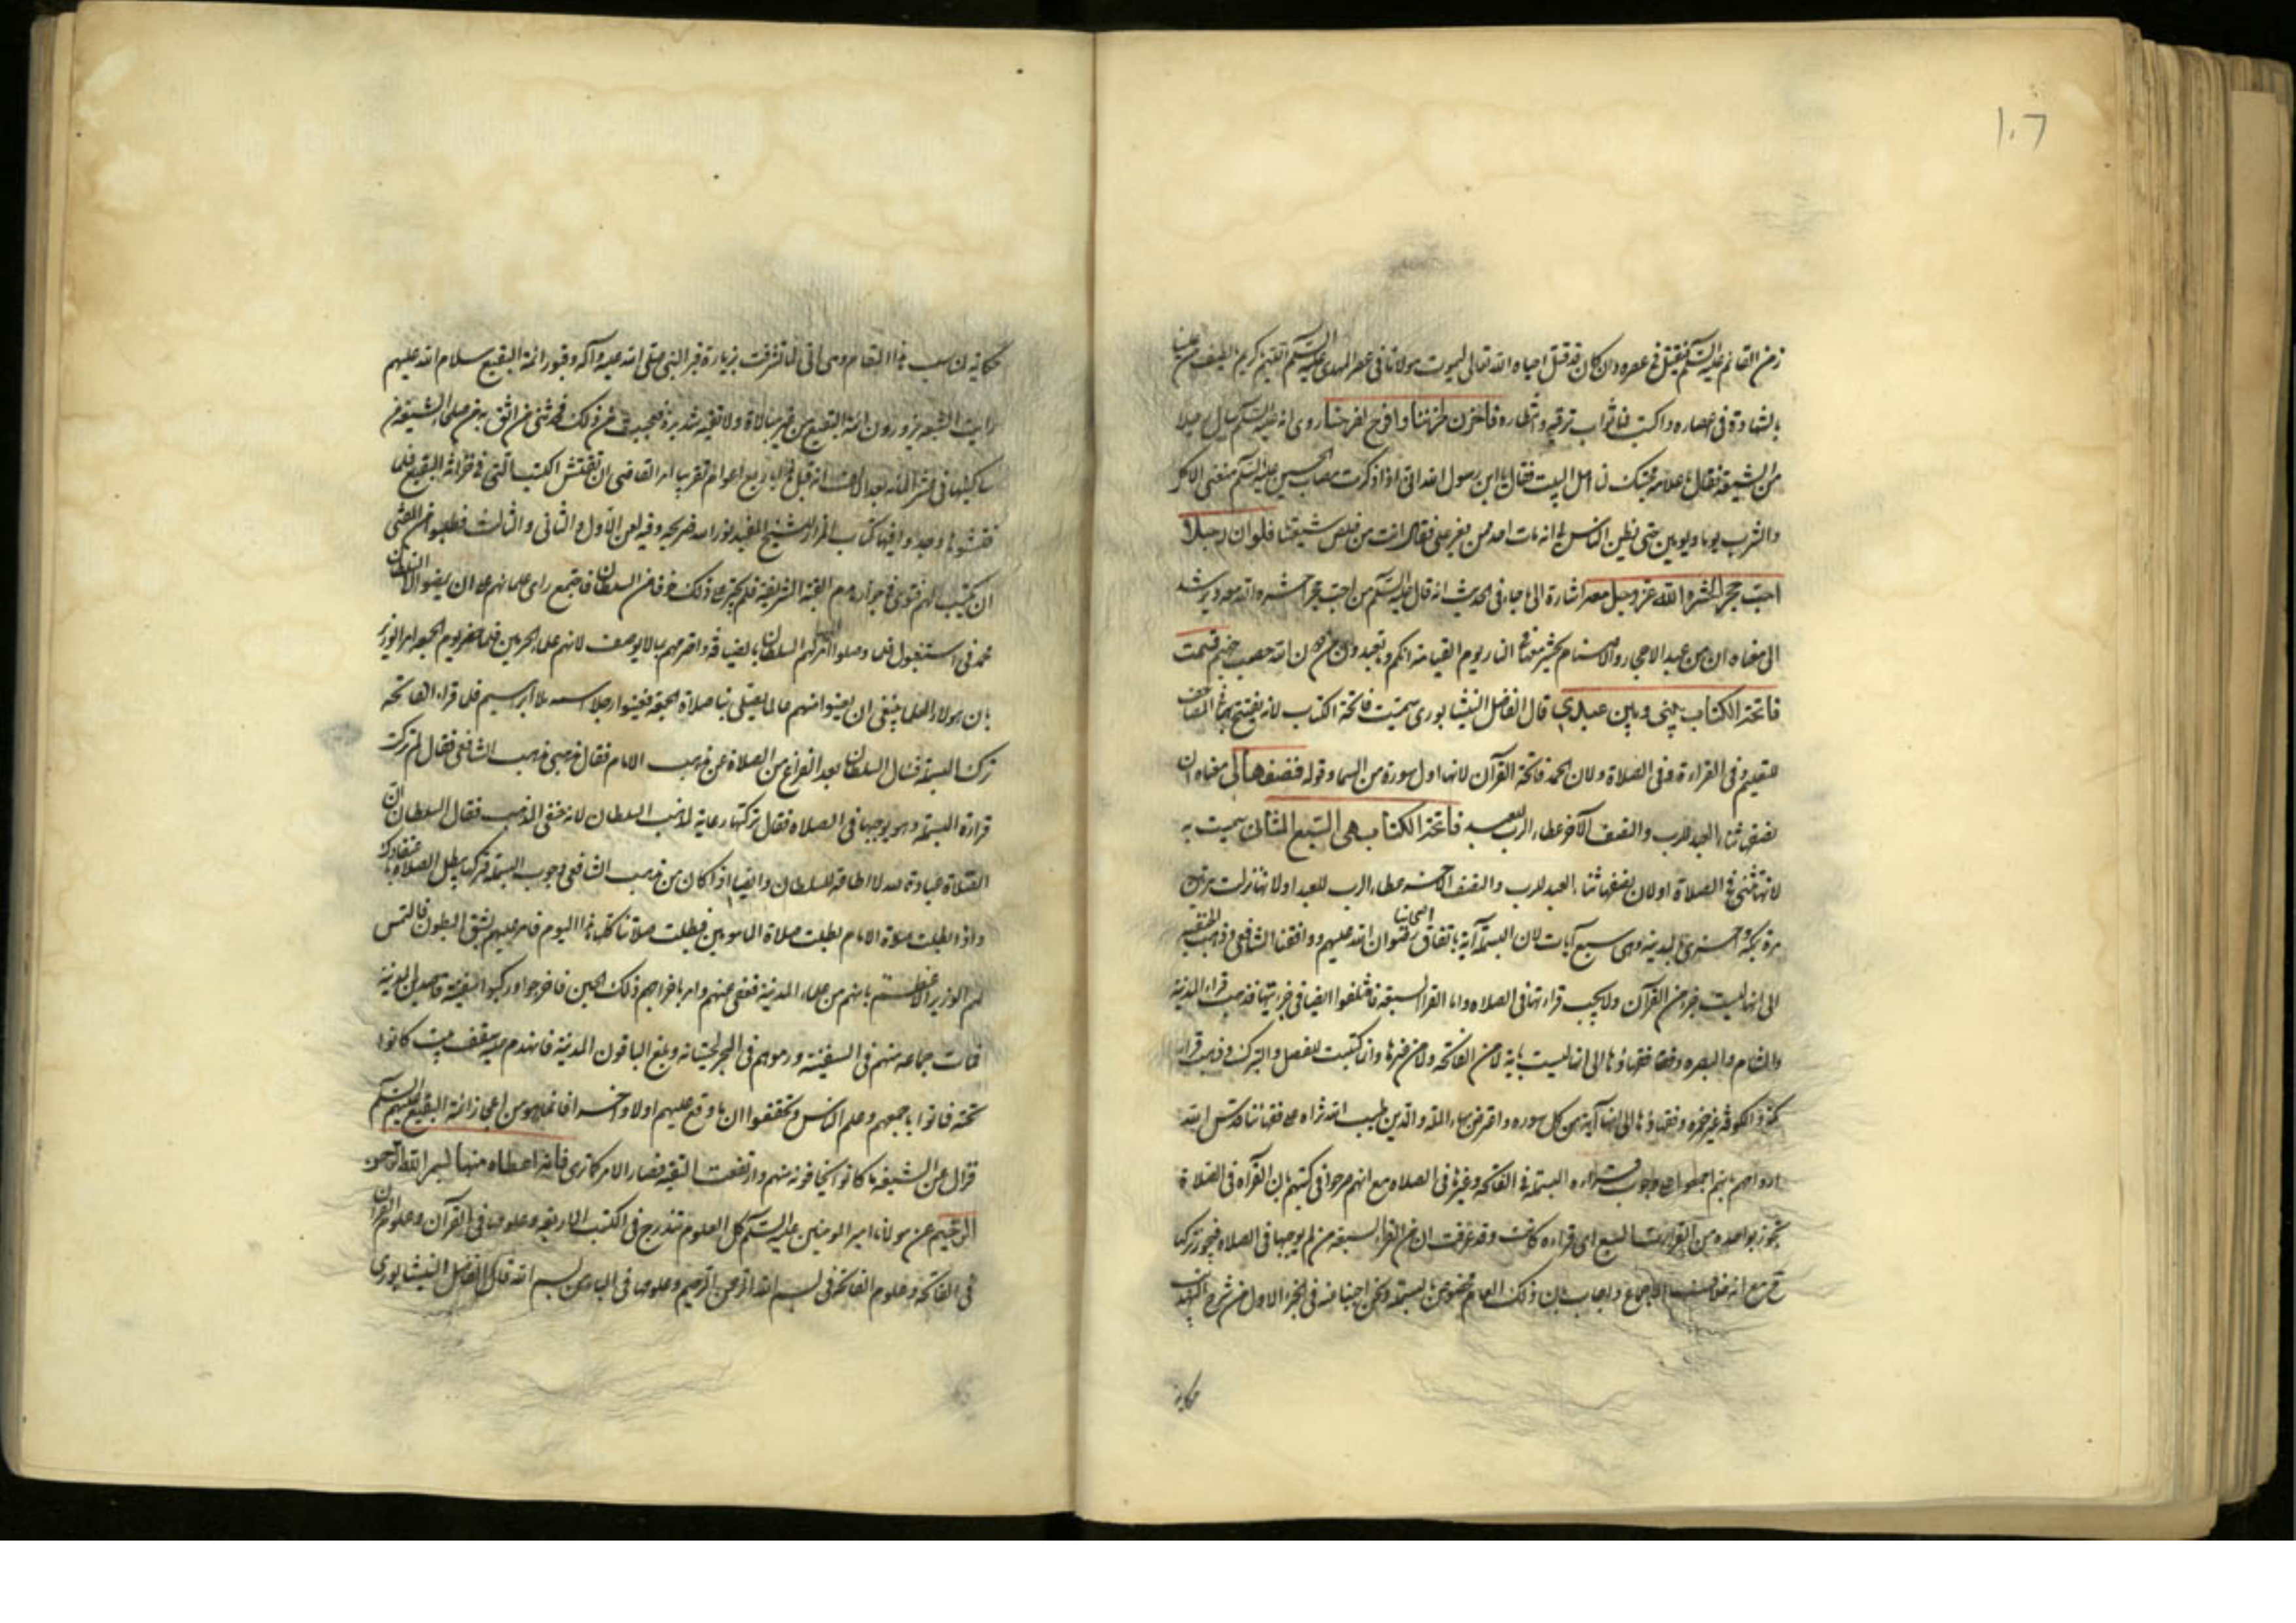 ١٠٦
زمن القائم عليه السلم فيقتل في عصره وان كان قد قتل احياه الله تعالى ليموت مولانا في عصر المهدي عليه السلم اللهم كريم
بالشهادة في اعصاره واكتب لنا ثواب ترقبه وانتظاره فاحزن لحزننا وافرح لفرحنا روى انه عليه السلم سال رجلا
من الشيعة فقال ما علامة محبتك لنا اهل البيت فقال يا ابن رسول الله اني اذا ذكرت مصاب الحسين عليه السلم منعني الاكل
والشرب يوما ويومين حتى يظن الناس انه مات احد ممن يعز علي فقال انت من خلص شيعتنا فلو ان رجلا
احب حجرا لحشره الله عز وجل معه اشارة الى ما جاء في الحديث انه قال عليه السلم من احب حجرا حشره الله معه ويرشد
الى معناه ان من عبد الاحجار والاصنام يحشر معها في النار يوم القيامة انكم وما تعبدون من دون الله حصب جهنم قسمت
فاتحة الكتاب بيني وبين عبدي قال الفاضل النيشابوري سميت فاتحة الكتاب لانه يفتتح بها في المصاحف
للتعليم وفي القراءة وفي الصلاة ولان الحمد فاتحة القرآن لانها اول سورة من السماء وقوله فنصفها لي معناه ان
نصفها ثناء العبد للرب والنصف الآخر عطاء الرب للعبد فاتحة الكتاب هي السبع المثاني سميت به
لانها تثنى في الصلاة او لان نصفها ثناء العبد للرب والنصف الآخر عطاء الرب للعبد او لانها نزلت مرتين
مرة بمكة واخرى بالمدينة وهي سبع آيات لان البسملة آية باتفاق اصحابنا رضوان الله عليهم ووافقنا الشافعي وذهب الحنفية
الى انها ليست جزءا من القرآن ولا يجب قراءتها في الصلاه واما القراء السبعة فاختلفوا ايضا في جزئيتها فذهب قراء المدينة
والشام والبصره وفقهاؤها الى انها ليست بآية لا من الفاتحة ولا من غيرها وانما كتبت للفصل والتبرك وذهب قراء
مكة والكوفة غير حمزه وفقهاؤها الى انها آية من كل سوره واعترض بهاء الملة والدين طيب الله ثراه على فقهائنا قدس الله
ارواحهم بانهم اجمعوا على وجوب قراءة البسملة في الفاتحة وغيرها في الصلاه مع انهم صرحوا في كتبهم بان القراءه في الصلاة
تجوز بواحده من القراءات السبع اي قراءه كانت وقد عرفت ان من القراء السبعة من لم يوجبها في الصلاه فيجوز تركها
مع انه خلاف الاجماع واجاب بان ذلك العام مخصوص بالبسملة ونحن اجبنا عنه في الجزء الاول من شرح التهذيب
حكاية
حكاية تناسب هذا المقام وهي اني لما تشرفت بزيارة قبر النبي صلى الله عليه وآله وقبور ائمة البقيع سلام الله عليهم
رايت الشيعة يزورون ائمة البقيع من غير مبالاة ولا تقية شديدة فعجبت من ذلك فحدثني من اثق به من صلحاء الشيعة من
ساكنيها انه قبل هذا باربع اعوام تقريبا امر القاضي ان تفتش الكتب التي في خزانة البقيع فلما
فتشوها وجدوا فيها كتاب المزار للشيخ المفيد نور الله ضريحه وفيه لعن الاول والثاني والثالث فطلبوا من المفتي
ان يكتب لهم فتوى في جواز هدم القبة الشريفة فلم يجتر على ذلك خوفا من السلطان فاجتمع راي علمائهم على ان يمضوا الى السلطان
محمد في استنبول فلما وصلوا اليه اكرمهم السلطان بالضيافة واحترمهم بما لا يوصف لانهم علماء الحرمين فلما حضر يوم الجمعة امر الوزير
بان هولاء العلماء ينبغي ان يعينوا منهم عالما يصلي بنا صلاة الجمعة فعينوا رجلا اسمه ملا ابراهيم فلما قراء الفاتحة
ترك البسملة فسال السلطان بعد الفراغ من الصلاة عن مذهب الامام فقال مذهبي مذهب الشافعي فقال لم تركت
قراءة البسملة وهو يوجبها في الصلاه فقال تركتها رعاية لمذهب السلطان لانه حنفي المذهب فقال السلطان ان
الصلاة عبادة لله لا اطاعة للسلطان وايضا اذا كان من مذهب الشافعي وجوب البسملة فتركها يبطل الصلاه باعتقادك
واذا بطلت صلاة الامام بطلت صلاة المامومين فبطلت صلاتنا كلها هذا اليوم فامر عليهم بشق البطون فالتمس
لهم الوزير الاعظم بانهم من علماء المدينة فعفى عنهم وامر باخراجهم ذلك الحين فاخرجوا وركبوا السفينة قاصدين المدينة
فمات جماعه منهم في السفينة ورموهم في البحر لحيتانه وبلغ الباقون المدينة فانهدم عليهم سقف بيت كانوا
تحته فماتوا باجمعهم وعلم الناس وتحققوا ان ما وقع عليهم اولا واخرا انما هو من اعجاز ائمة البقيع عليهم السلم
فزال عن الشيعة ما كانوا يخافونه منهم وارتفعت التقية فصار الامر كما ترى فاذا اعطاه منها بسم الله الرحمن
الرحيم عن مولانا امير المومنين عليه السلم كل العلوم تندرج في الكتب الاربعة وعلومها في القرآن وعلوم القرآن
في الفاتحة وعلوم الفاتحة في بسم الله الرحمن الرحيم وعلومها في الباء من بسم الله قال الفاضل النيشابوري